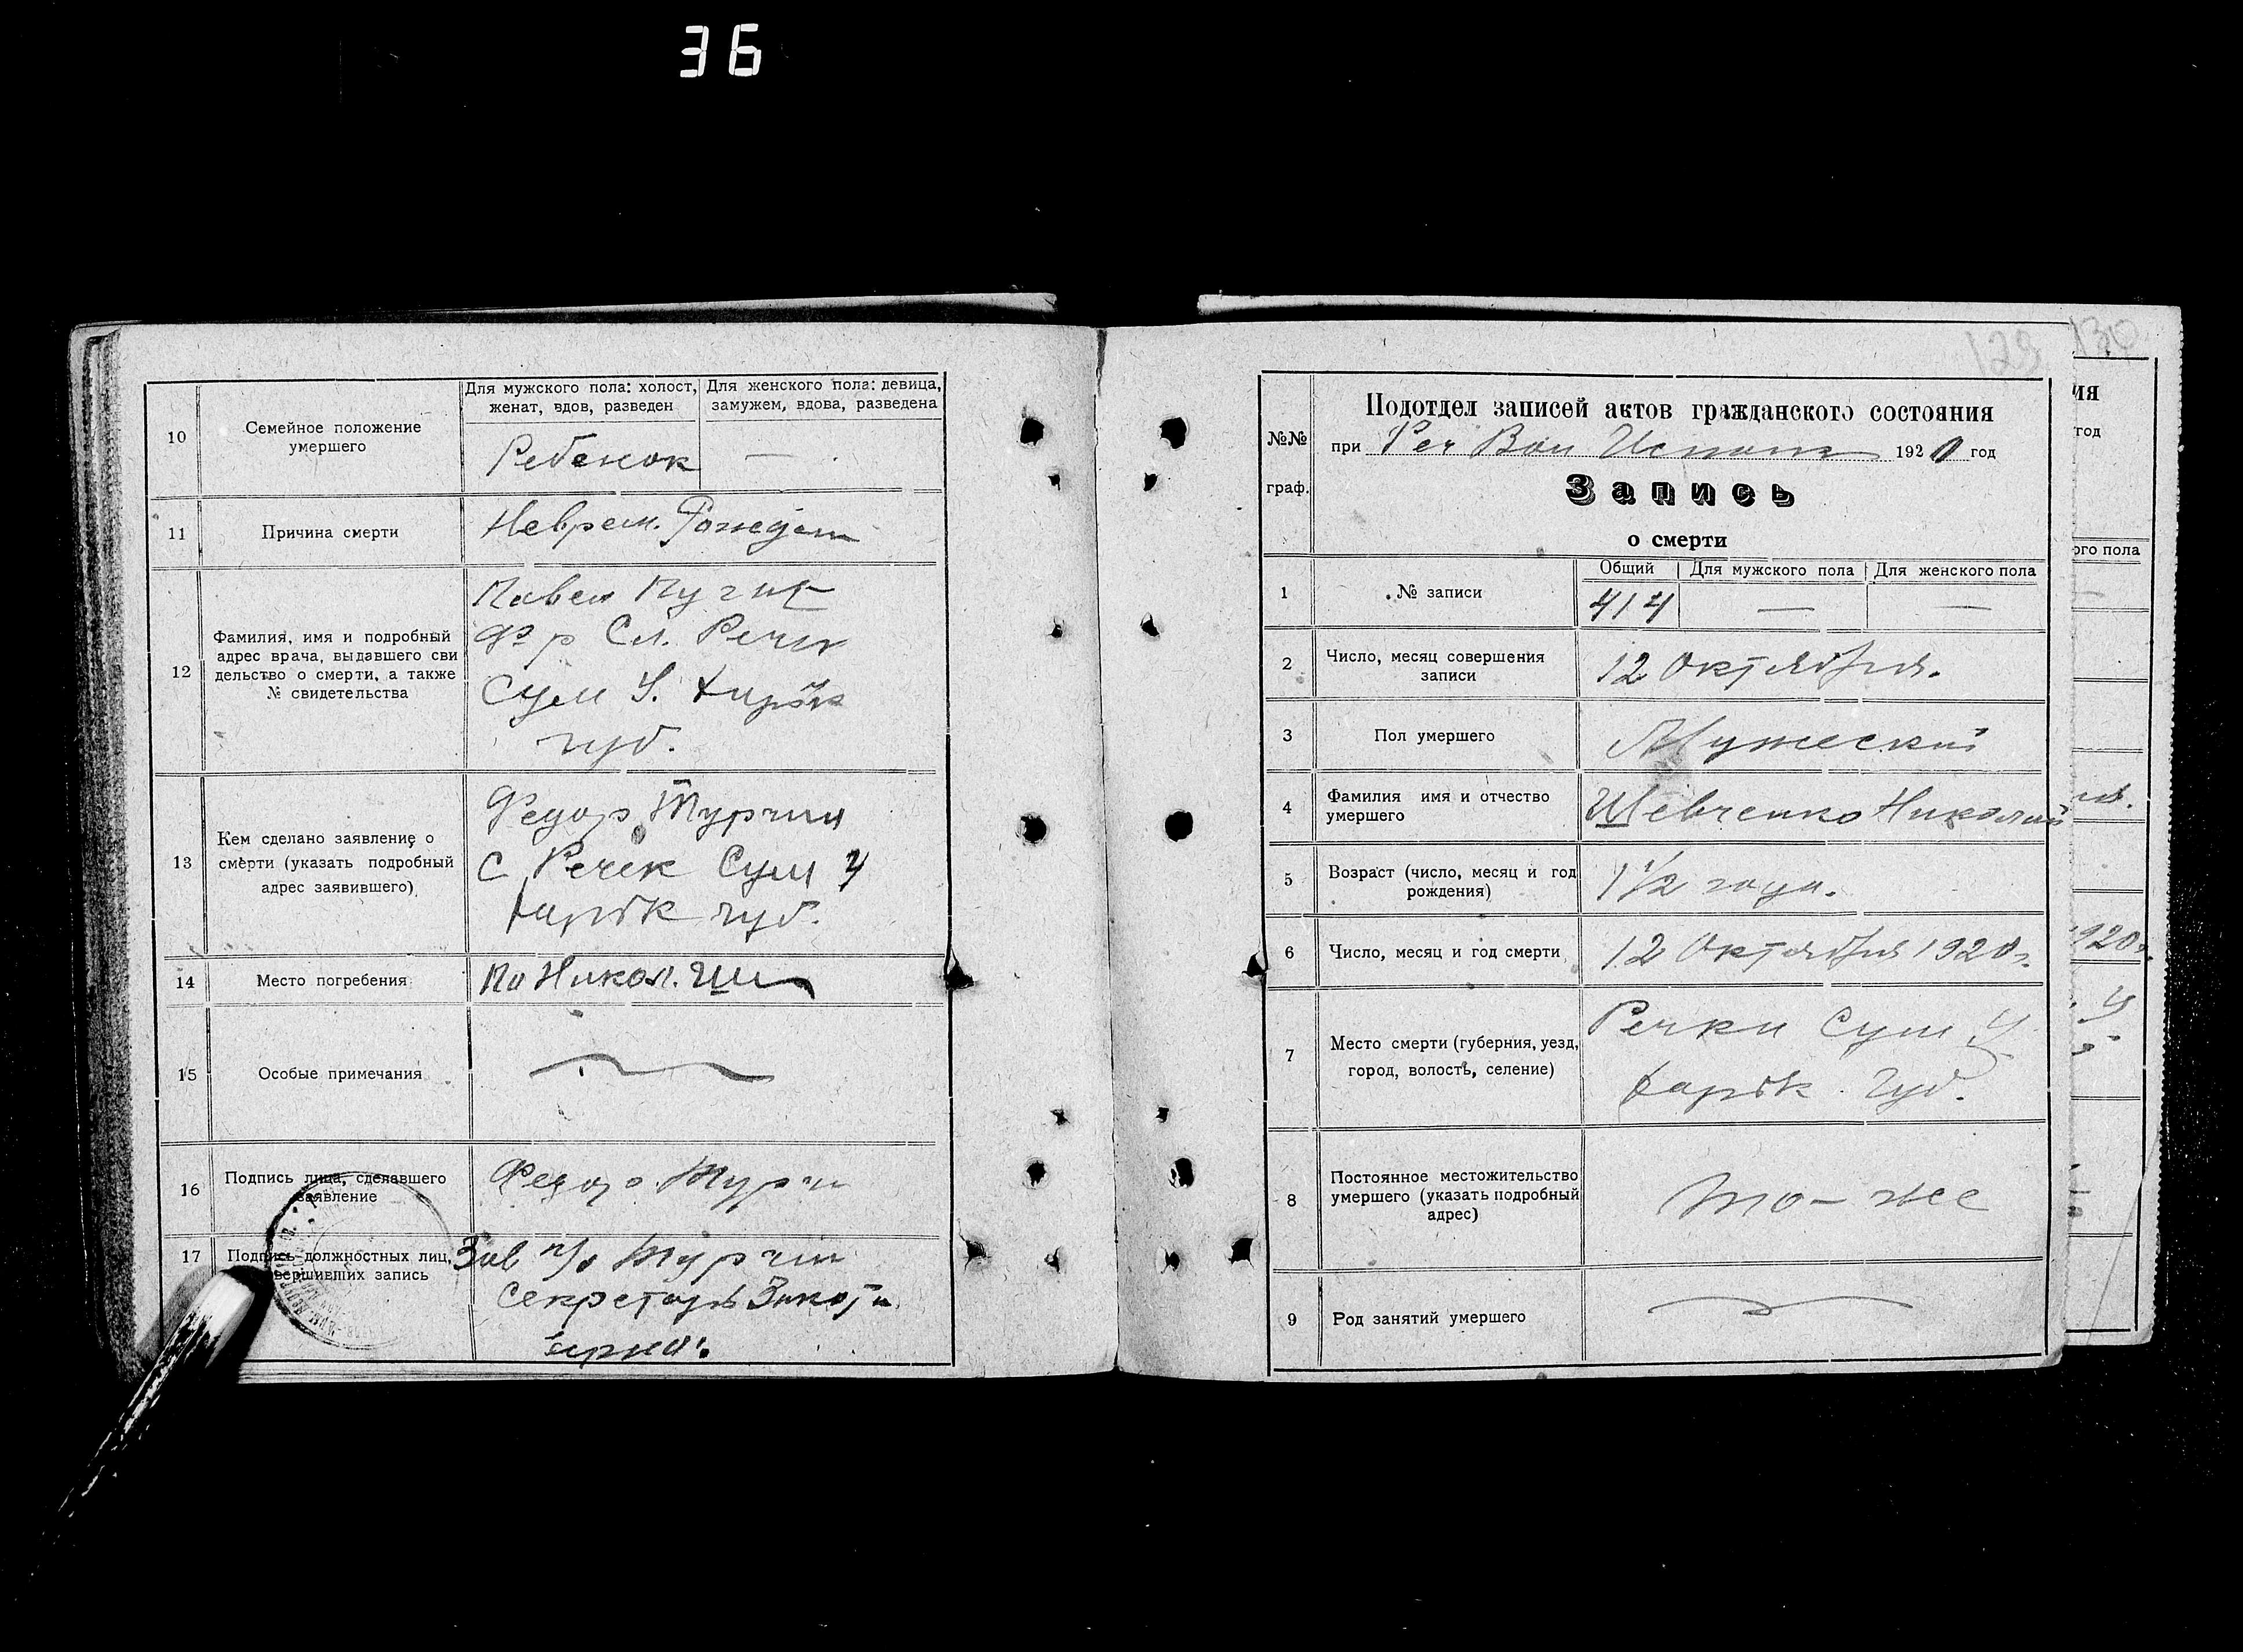 36
10
Семейное положение
умершего
Для мужского пола: холост,
женат, вдов, разведен
Для женского пола: девица,
замужем, вдова, разведена
Ребенок
—
11
Причина смерти
Неврем. Рожден
12
Фамилия, имя и подробный
адрес врача, выдавшего сви
дельство о смерти, а также
№ свидетельства
Павел
Сл. Речк
Сум У. Харьк
губ.
13
Кем сделано заявление о
смерти (указать подробный
адрес заявившего)
Федор Турчин
С Речек Сум У
Харьк губ.
14
Место погребения
На Никол.
15
Особые примечания
16
Подпись лица, сделавшего
заявление
Федор Турчи
17
Подпись должностных лиц,
вершивших запись
Зав п/о Турчин
Секретарь
129
№№
граф.
Подотдел записей актов гражданского состояния
при Реч Вол Исполк 1920 год
Запись
о смерти
1
№ записи
Общий
Для мужского пола
Для женского пола
414
—
—
2
Число, месяц совершения
записи
12 Октября.
3
Пол умершего
Мужеский
4
Фамилия имя и отчество
умершего
Шевченко Николай
5
Возраст (число, месяц и год
рождения)
1 1/2 года.
6
Число, месяц и год смерти
12 Октября 1920 г.
7
Место смерти (губерния, уезд,
город, волость, селение)
Речки Сум У.
Харьк. Губ.
8
Постоянное местожительство
умершего (указать подробный
адрес)
то-же
9
Род занятий умершего
130
ия
год
ого пола
920г.
У